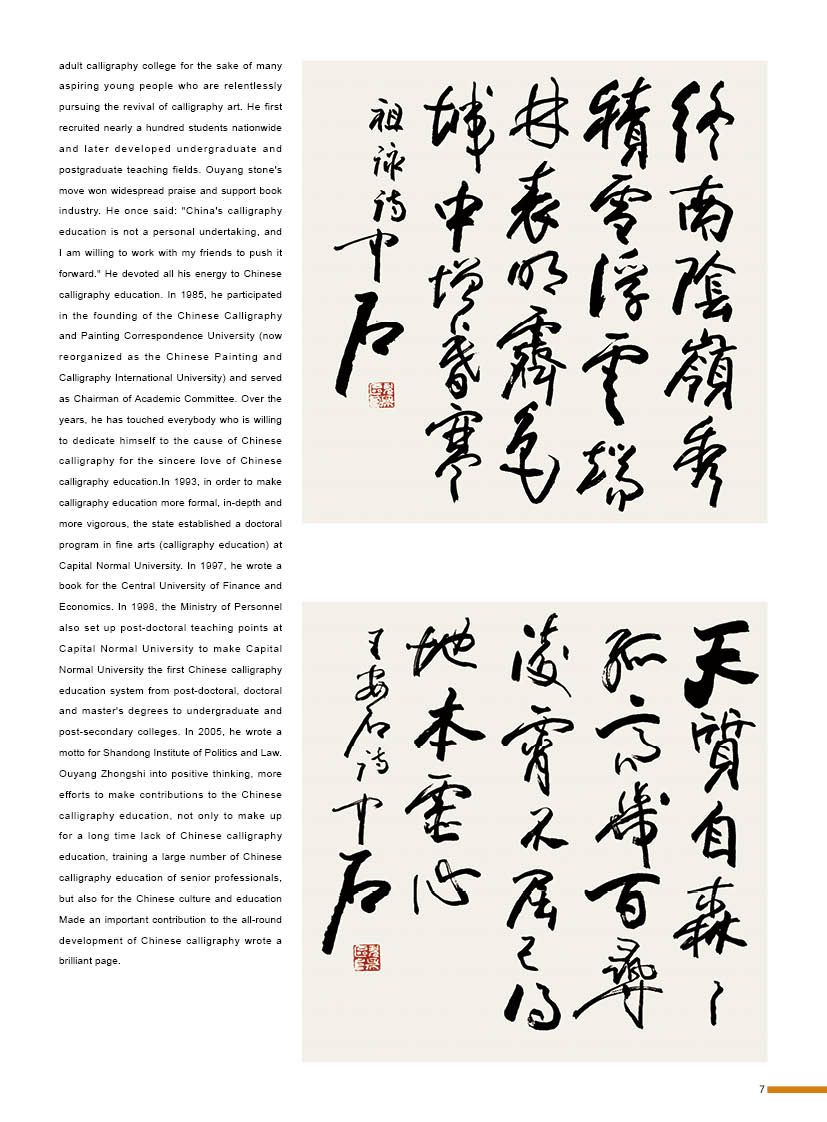 adult calligraphy college for the sake of many
aspiring young people who are relentlessly
pursuing the revival of calligraphy art. He first
recruited nearly a hundred students nationwide
and later developed undergraduate and
postgraduate teaching fields. Ouyang stone's
move won widespread praise and support book
industry. He once said: "China's calligraphy
education is not a personal undertaking, and
I am willing to work with my friends to push it
forward." He devoted all his energy to Chinese
calligraphy education. In 1985, he participated
in the founding of the Chinese Calligraphy
and Painting Correspondence University (now
reorganized as the Chinese Painting and
Calligraphy International University) and served
as Chairman of Academic Committee. Over the
years, he has touched everybody who is willing
to dedicate himself to the cause of Chinese
calligraphy for the sincere love of Chinese
calligraphy education.In 1993, in order to make
calligraphy education more formal, in-depth and
more vigorous, the state established a doctoral
program in fine arts (calligraphy education) at
Capital Normal University. In 1997, he wrote a
book for the Central University of Finance and
Economics. In 1998, the Ministry of Personnel
also set up post-doctoral teaching points at
Capital Normal University to make Capital
Normal University the first Chinese calligraphy
education system from post-doctoral, doctoral
and master's degrees to undergraduate and
post-secondary colleges. In 2005, he wrote a
motto for Shandong Institute of Politics and Law.
Ouyang Zhongshi into positive thinking, more
efforts to make contributions to the Chinese
calligraphy education, not only to make up
for a long time lack of Chinese calligraphy
education, training a large number of Chinese
calligraphy education of senior professionals,
but also for the Chinese culture and education
Made an important contribution to the all-round
development of Chinese calligraphy wrote a
brilliant page.
終南陰嶺秀
積雪浮雲端
林表明霽色
城中增暮寒
祖詠詩中石
天質自森々
孤高幾百尋
凌霄不屈己得
地本虛心
王安石詩中石
7